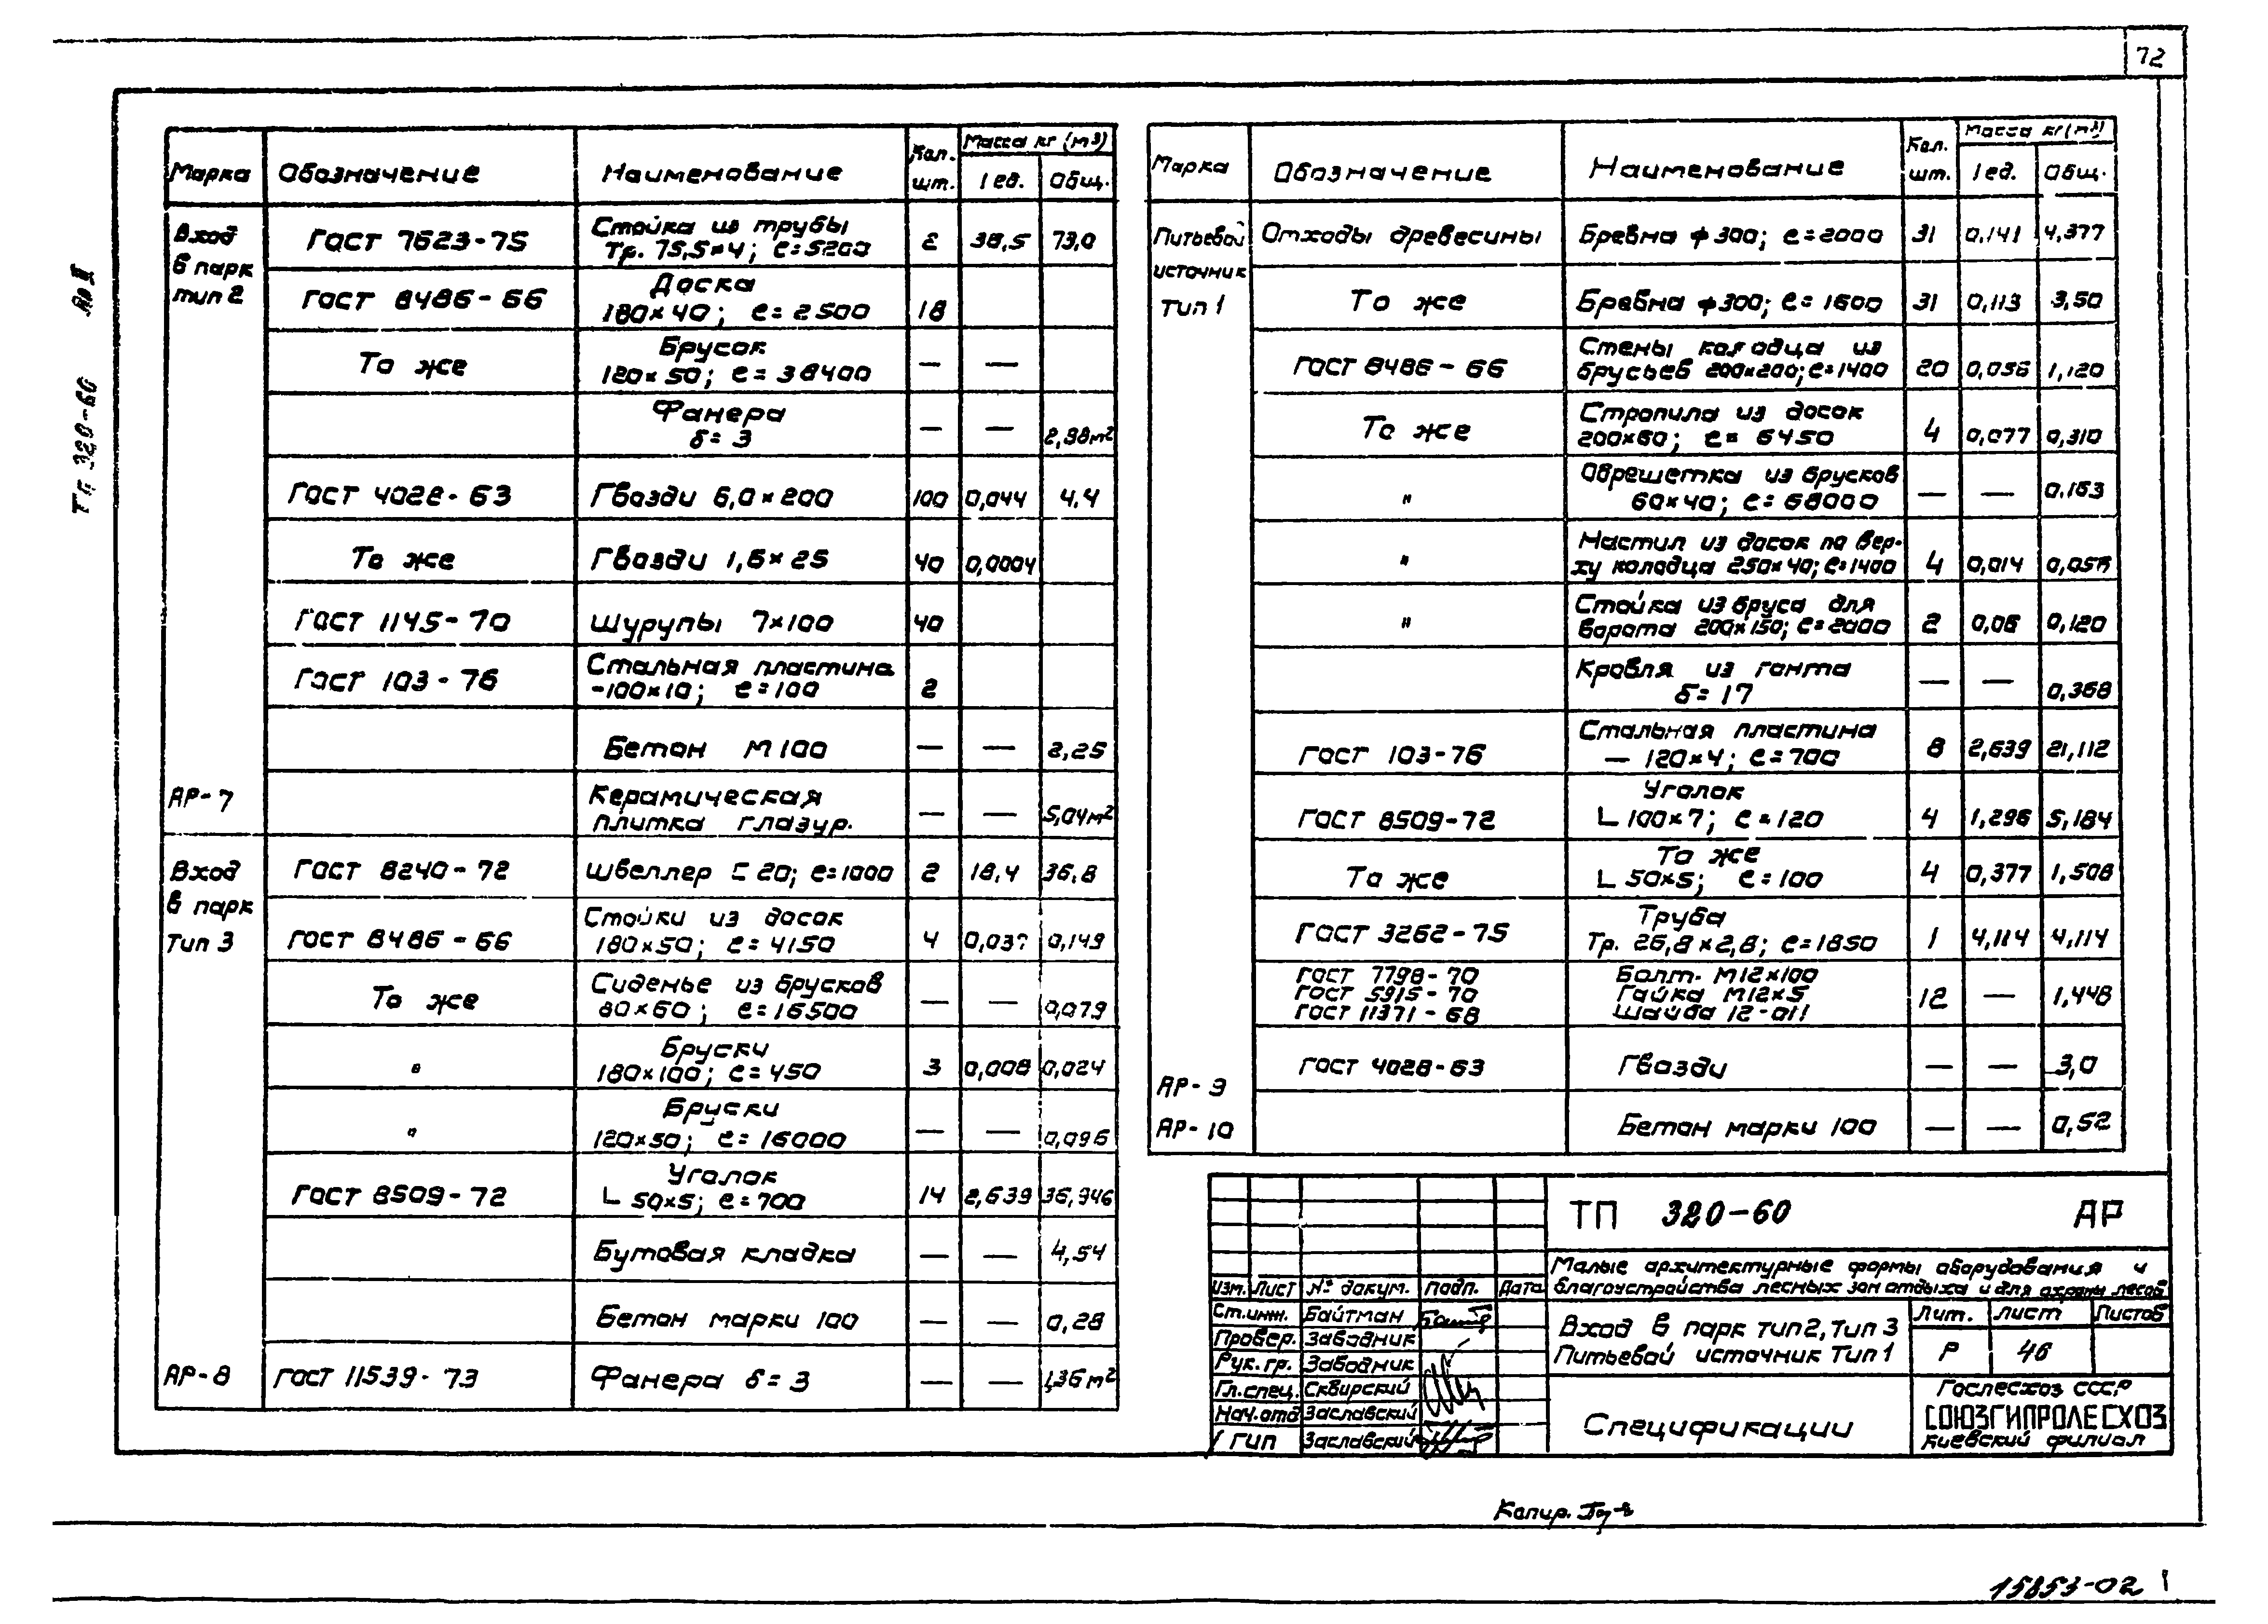 72
ТП 320-60
Марка Обозначение Наименование Кол. шт. Масса кг (м³)
1 ед. Общ.
Вход в парк тип 2
ГОСТ 7623-75 Стойка из трубы
Тр. 75,5×4; ℓ=5200 2 38,5 73,0
ГОСТ 8486-66 Доска
180×40; ℓ=2500 18
То же Брусок
120×50; ℓ=38400 — —
Фанера
δ=3 — — 2,98м²
ГОСТ 4028-63 Гвозди 6,0×200 100 0,044 4,4
То же Гвозди 1,6×25 40 0,0004
ГОСТ 1145-70 Шурупы 7×100 40
ГОСТ 103-76 Стальная пластина
-100×10; ℓ=100 2
Бетон М100 — — 2,25
АР-7 Керамическая
плитка глазур. — — 5,04м²
Вход в парк Тип 3
ГОСТ 8240-72 Швеллер ⊏ 20; ℓ=1000 2 18,4 36,8
ГОСТ 8486-66 Стойки из досок
180×50; ℓ=4150 4 0,037 0,149
То же Сиденье из брусков
80×60; ℓ=16500 — — 0,079
" Бруски
180×100; ℓ=450 3 0,008 0,024
" Бруски
120×50; ℓ=16000 — — 0,096
ГОСТ 8509-72 Уголок
∟ 50×5; ℓ=700 14 2,639 36,946
Бутовая кладка — — 4,54
Бетон марки 100 — — 0,28
АР-8 ГОСТ 11539-73 Фанера δ=3 — — 1,36м²
Марка Обозначение Наименование Кол. шт. Масса кг (м³)
1 ед. Общ.
Питьевой источник Тип 1
Отходы древесины Бревна ф300; ℓ=2000 31 0,141 4,377
То же Бревна ф300; ℓ=1600 31 0,113 3,50
ГОСТ 8486-66 Стены колодца из
брусьев 200×200; ℓ=1400 20 0,056 1,120
То же Стропила из досок
200×60; ℓ=6450 4 0,077 0,310
" Обрешетка из брусков
60×40; ℓ=68000 — — 0,163
" Настил из досок по вер-
ху колодца 250×40; ℓ=1400 4 0,014 0,056
" Стойка из бруса для
ворота 200×150; ℓ=2000 2 0,06 0,120
Кровля из гонта
δ=17 — — 0,368
ГОСТ 103-76 Стальная пластина
— 120×4; ℓ=700 8 2,639 21,112
ГОСТ 8509-72 Уголок
∟ 100×7; ℓ=120 4 1,296 5,184
То же То же
∟ 50×5; ℓ=100 4 0,377 1,508
ГОСТ 3262-75 Труба
Тр. 26,8×2,8; ℓ=1850 1 4,114 4,114
ГОСТ 7798-70 Болт. М12×100
ГОСТ 5915-70 Гайка М12×5 12 — 1,448
ГОСТ 11371-68 Шайба 12-011
АР-9 ГОСТ 4028-63 Гвозди — — 3,0
АР-10 Бетон марки 100 — — 0,52
ТП 320-60 АР
Малые архитектурные формы оборудования и
благоустройства лесных зон отдыха и для охраны лесов
Изм. Лист № докум. Подп. Дата
Ст.инж. Байтман
Провер. Заводник
Рук.гр. Заводник
Гл.спец. Сквирский
Нач.отд Заславский
ГИП Заславский
Вход в парк тип 2, тип 3
Питьевой источник Тип 1
Лит. Лист Листов
Р 46
Спецификации
Гослесхоз СССР
СОЮЗГИПРОЛЕСХОЗ
Киевский филиал
Копир.
15853-02